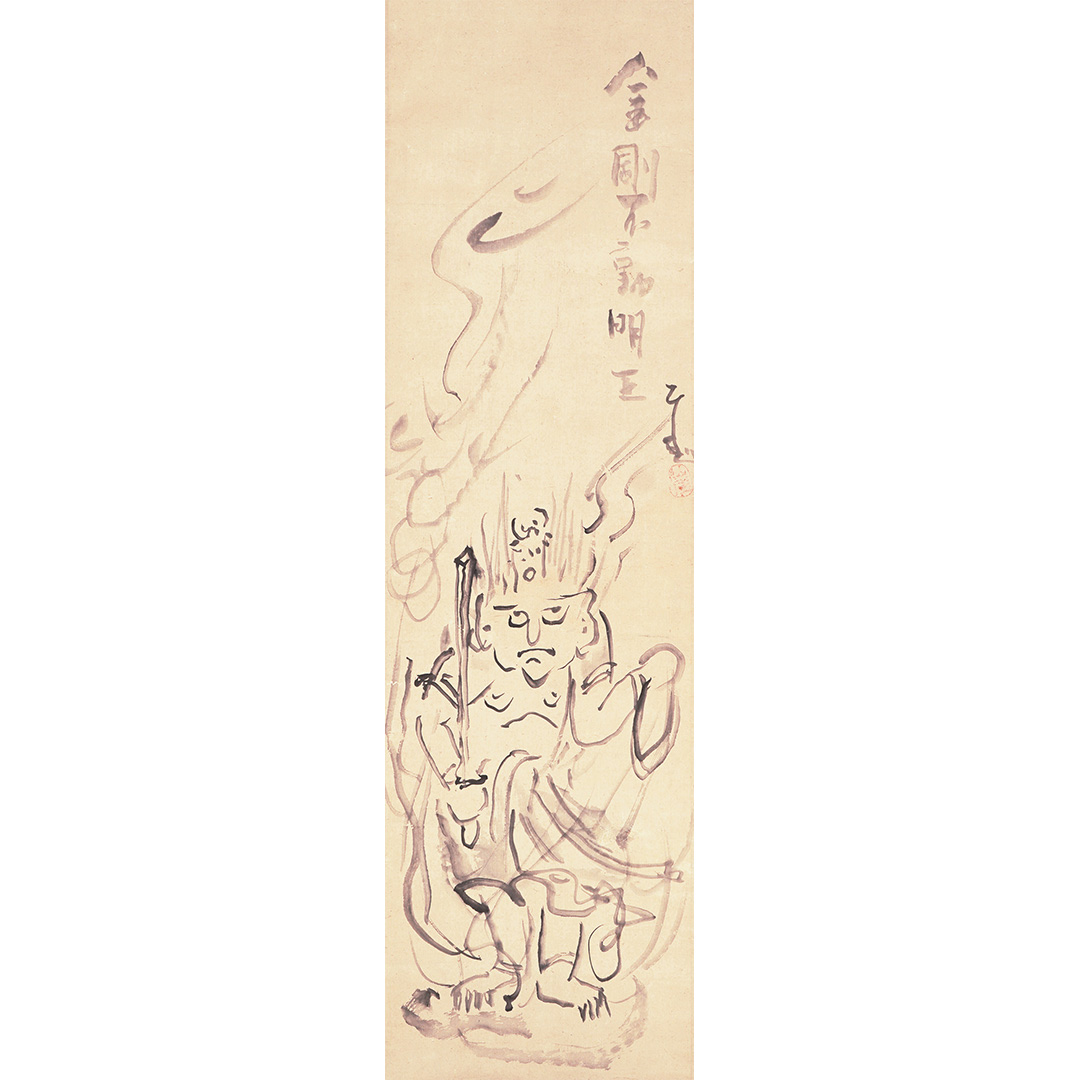 金剛不動明王